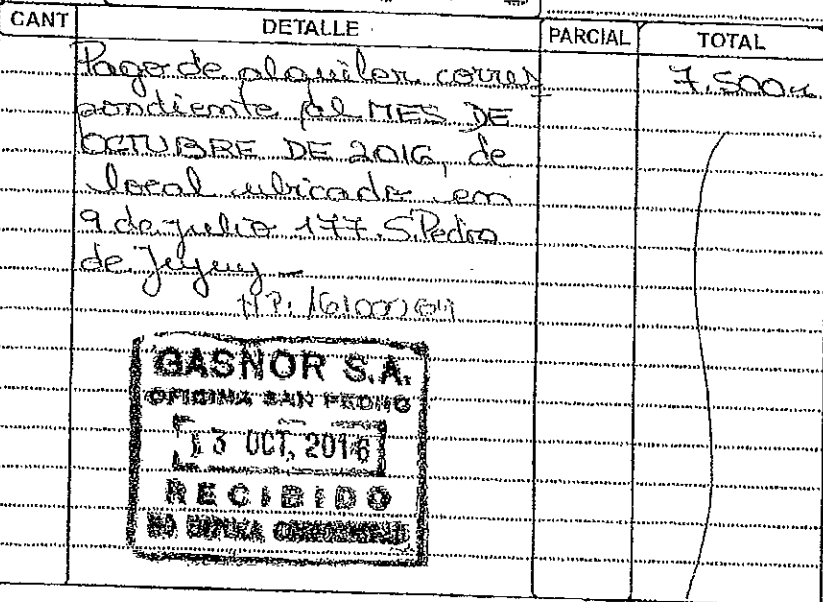 CANT DETALLE PARCIAL TOTAL
Pago de alquiler corres 7.500
pondiente al MES DE
OCTUBRE DE 2016, de
local ubicado en
9 de julio 177. S. Pedro
de Jujuy
GASNOR S.A.
OFICINA SAN PEDRO
13 OCT, 2016
RECIBIDO
NO IMPLICA CONFORMIDAD